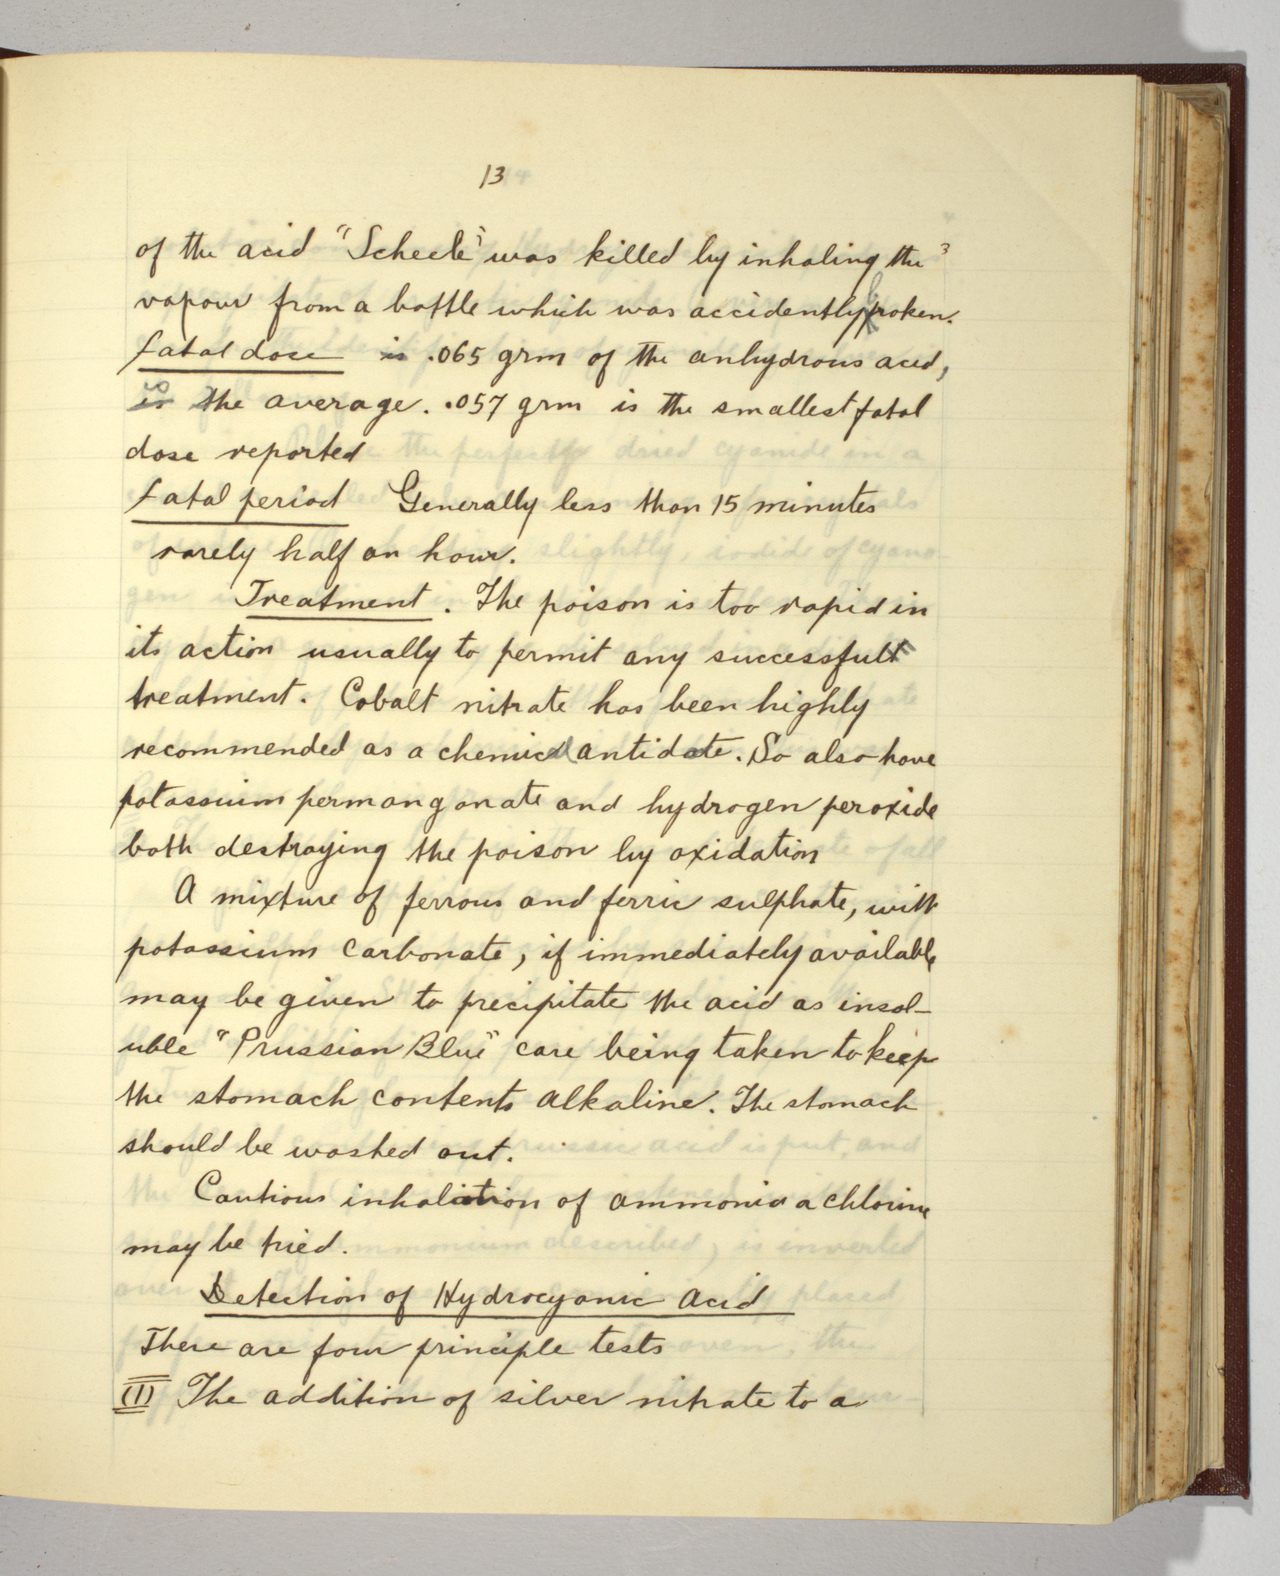 13
of the acid "Scheele" was killed by inhaling the
vapour from a bottle which was accidently broken.
Fatal dose is .065 grm of the anhydrous acid,
is the average. .057 grm is the smallest fatal
dose reported
Fatal period Generally less than 15 minutes
rarely half an hour.
Treatment. The poison is too rapid in
its action usually to permit any successful
treatment. Cobalt nitrate has been highly
recommended as a chemical antidote. So also have
potassium permanganate and hydrogen peroxide
both destroying the poison by oxidation
A mixture of ferrous and ferric sulphate, with
potassium carbonate, if immediately available
may be given to precipitate the acid as insol-
uble "Prussian Blue" care being taken to keep
the stomach contents alkaline. The stomach
should be washed out.
Cautious inhalation of ammonia a chlorine
may be tried.
Detection of Hydrocyanic Acid
There are four principle tests
(1) The addition of silver nitrate to a